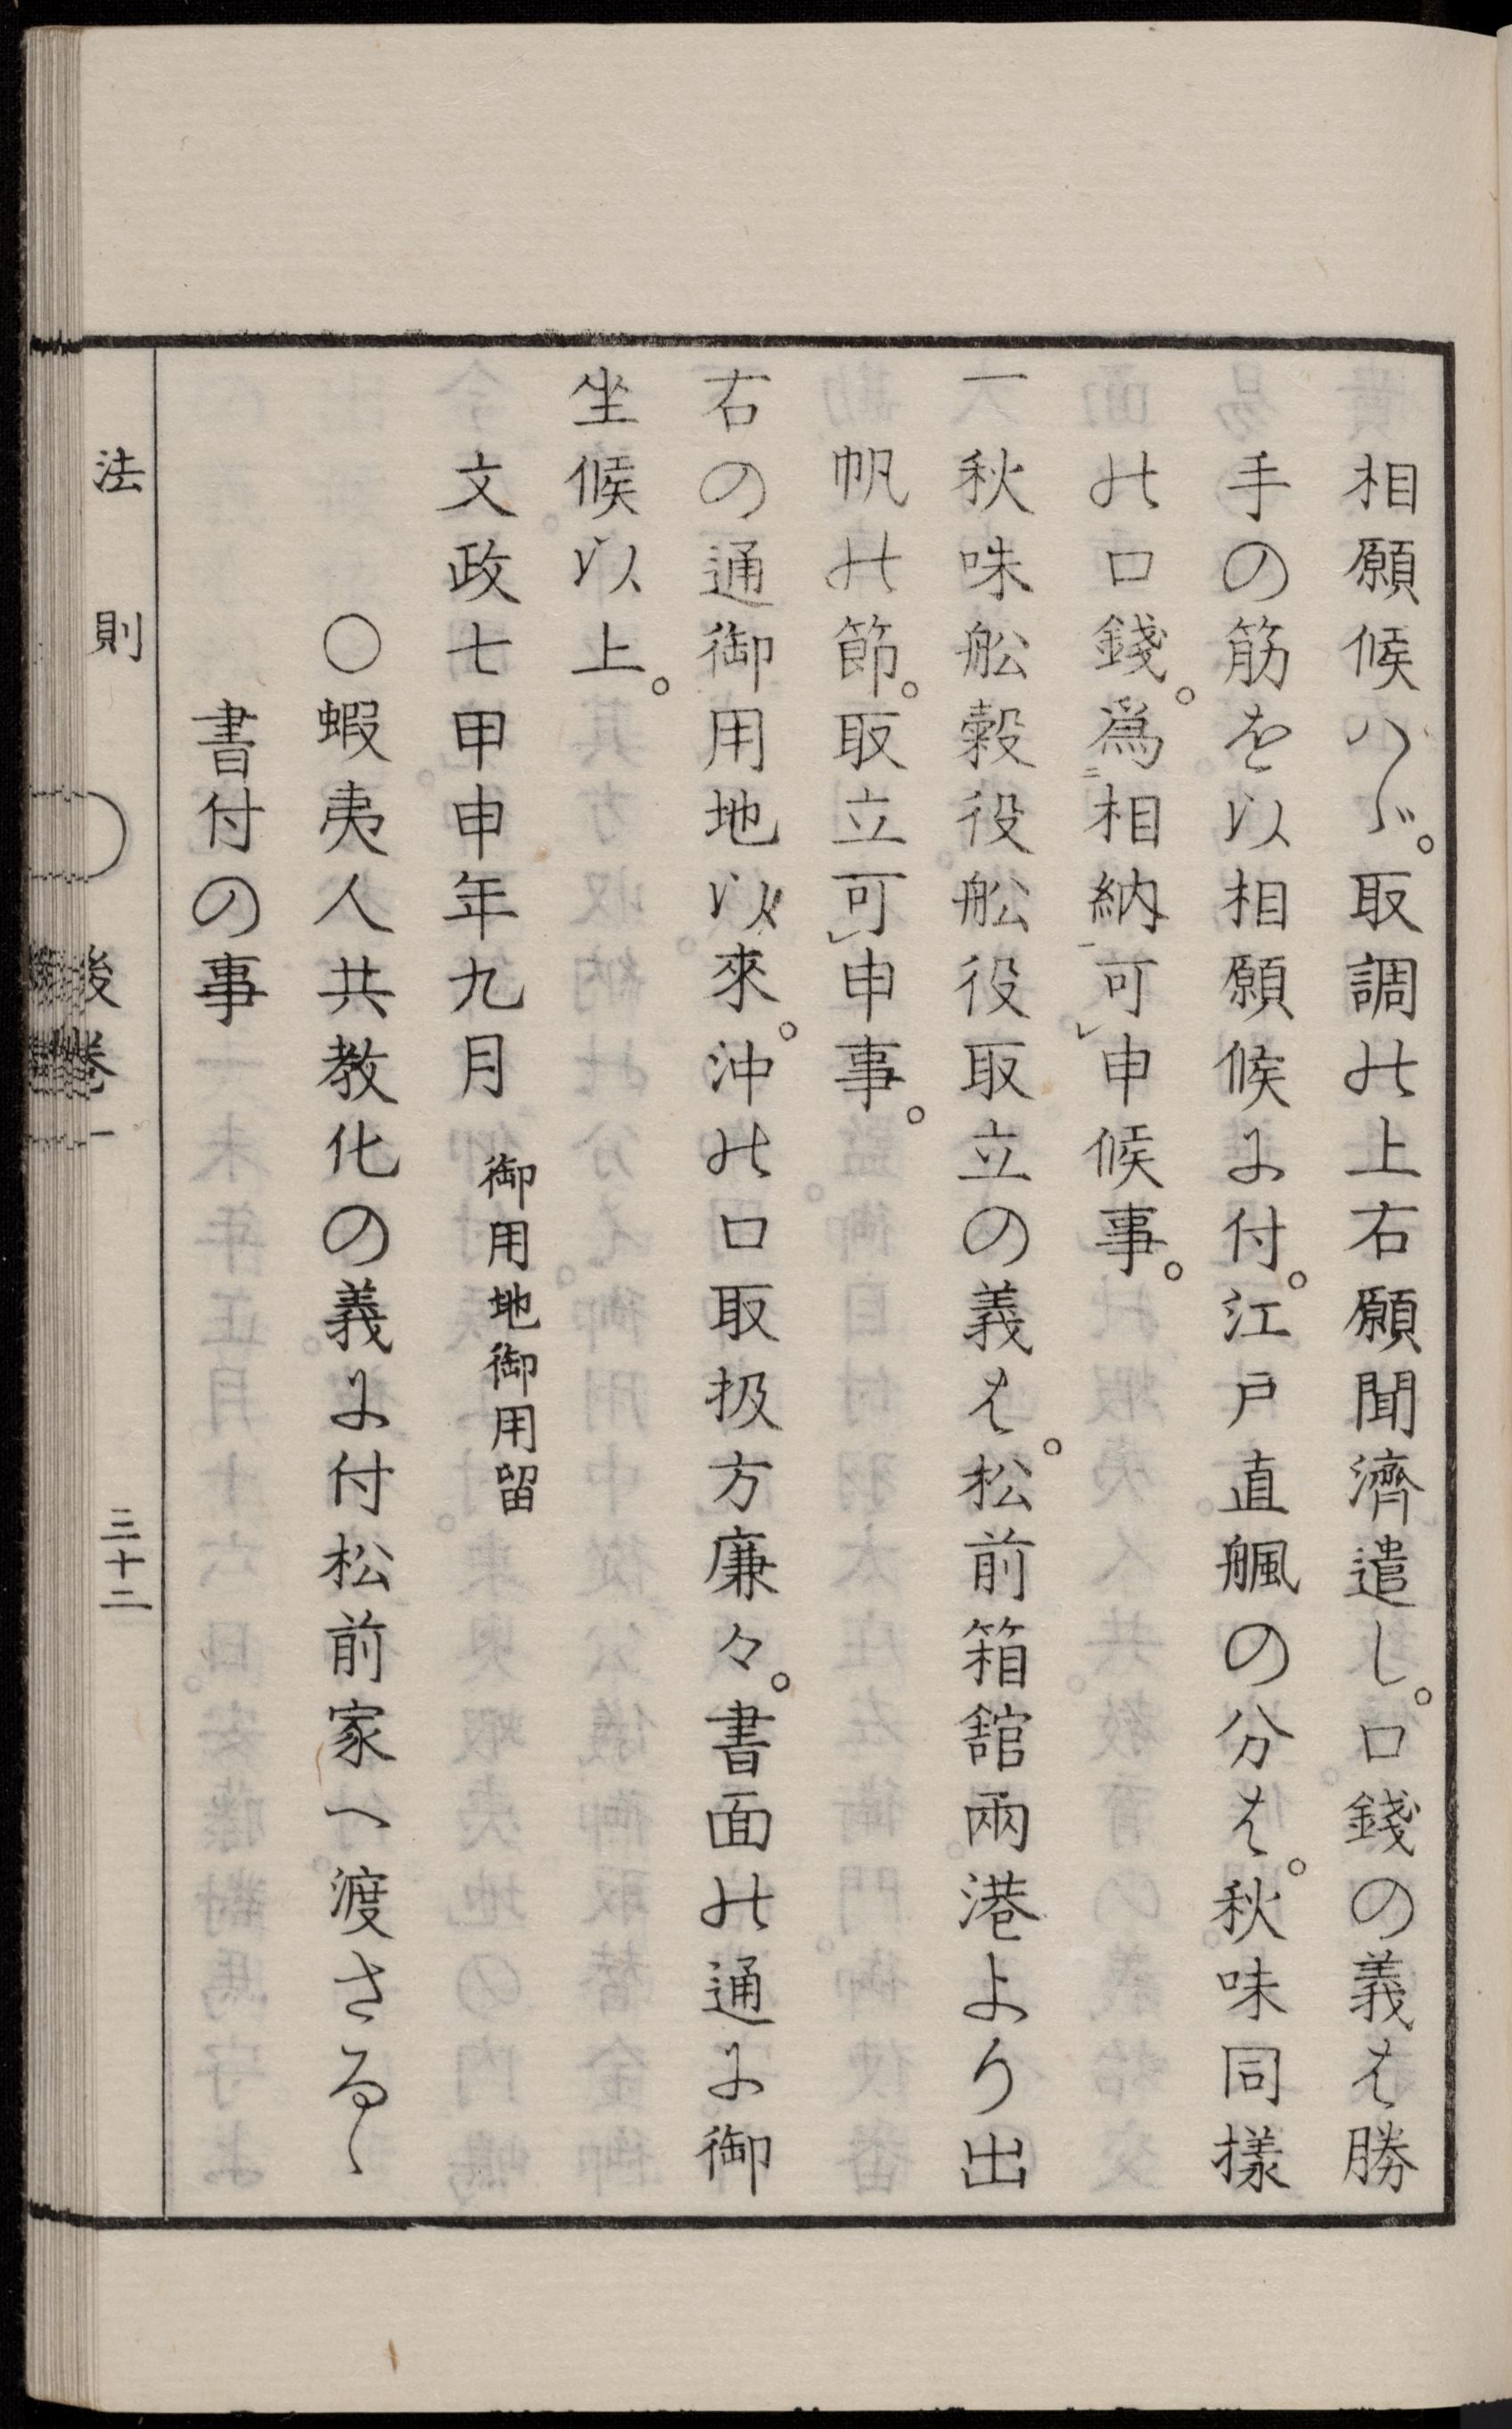 相願候ハヾ。取調の上右願聞濟遣し。口錢の義は勝
手の筋を以相願候に付。江戸直颿の分は。秋味同樣
の口錢。爲ニ相納一可レ申候事。
一秋味舩穀役舩役取立の義は。松前箱舘兩港より出
帆の節。取立可レ申事。
右の通御用地以來。沖の口取扱方廉々。書面の通に御
坐候以上。
文政七甲申年九月　御用地御用留
○蝦夷人共教化の義に付松前家へ渡さるゝ
書付の事
法則　後巻一　三十二